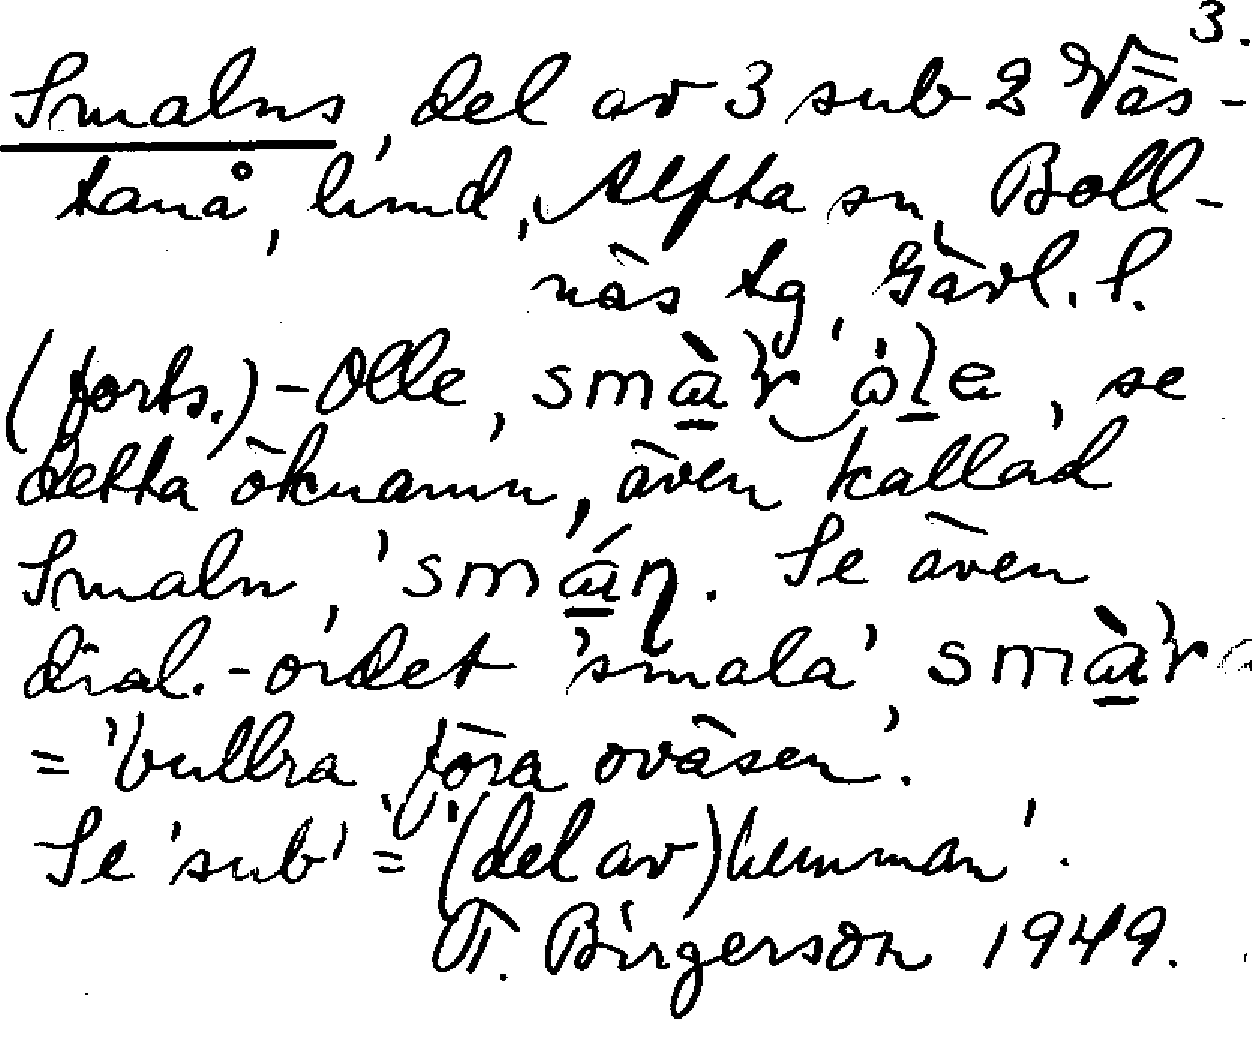 3.
Smalns, del av 3 sub 2 Väs-
tanå, lind, Alfta sn, Boll-
näs tg, Gävl. l.
(forts.) - Olle, smàr òle, se
detta öknamn, även kallad
Smaln, smáṇ. Se även
dial.-ordet 'smala', smàr
= 'bullra, föra oväsen'.
Se 'sub' = '(del av) hemman'.
T. Birgerson 1949.